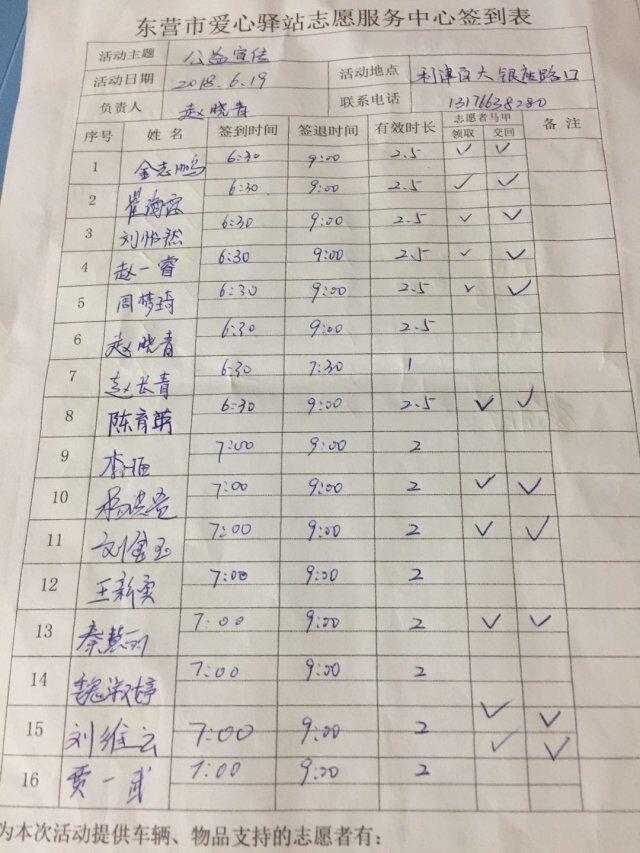 东营市爱心驿站志愿服务中心签到表
活动主题 公益宣传
活动日期 2018.6.19 活动地点 利津区大银座路口
负责人 赵晓青 联系电话 13176638280
序号 姓名 签到时间 签退时间 有效时长 志愿者马甲 备注
领取 交回
1 金志鹏 6:30 9:00 2.5 ✓ ✓
2 6:30 9:00 2.5 ✓ ✓
3 6:30 9:00 2.5 ✓ ✓
4 赵一睿 6:30 9:00 2.5 ✓ ✓
5 周梦琦 6:30 9:00 2.5 ✓ ✓
6 赵晓青 6:30 9:00 2.5
7 赵长青 6:30 7:30 1
8 陈育苹 6:30 9:00 2.5 ✓ ✓
9 7:00 9:00 2
10 7:00 9:00 2 ✓ ✓
11 刘金玉 7:00 9:00 2 ✓ ✓
12 王新 7:00 9:00 2
13 秦慧丽 7:00 9:00 2 ✓ ✓
14 魏淑婷 7:00 9:00 2
15 刘维云 7:00 9:00 2 ✓ ✓
16 贾一武 7:00 9:00 2 ✓ ✓
为本次活动提供车辆、物品支持的志愿者有: